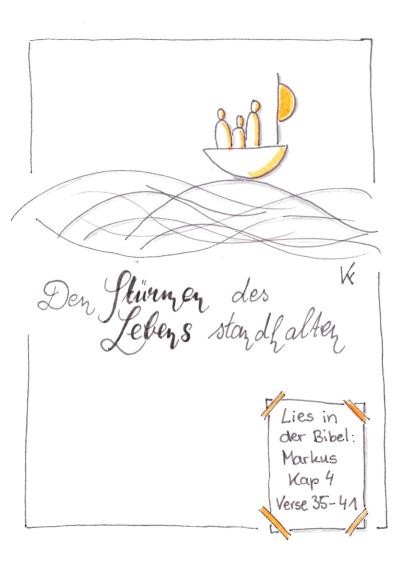 VK
Den Stürmen des
Lebens standhalten
Lies in
der Bibel:
Markus
Kap 4
Verse 35-41